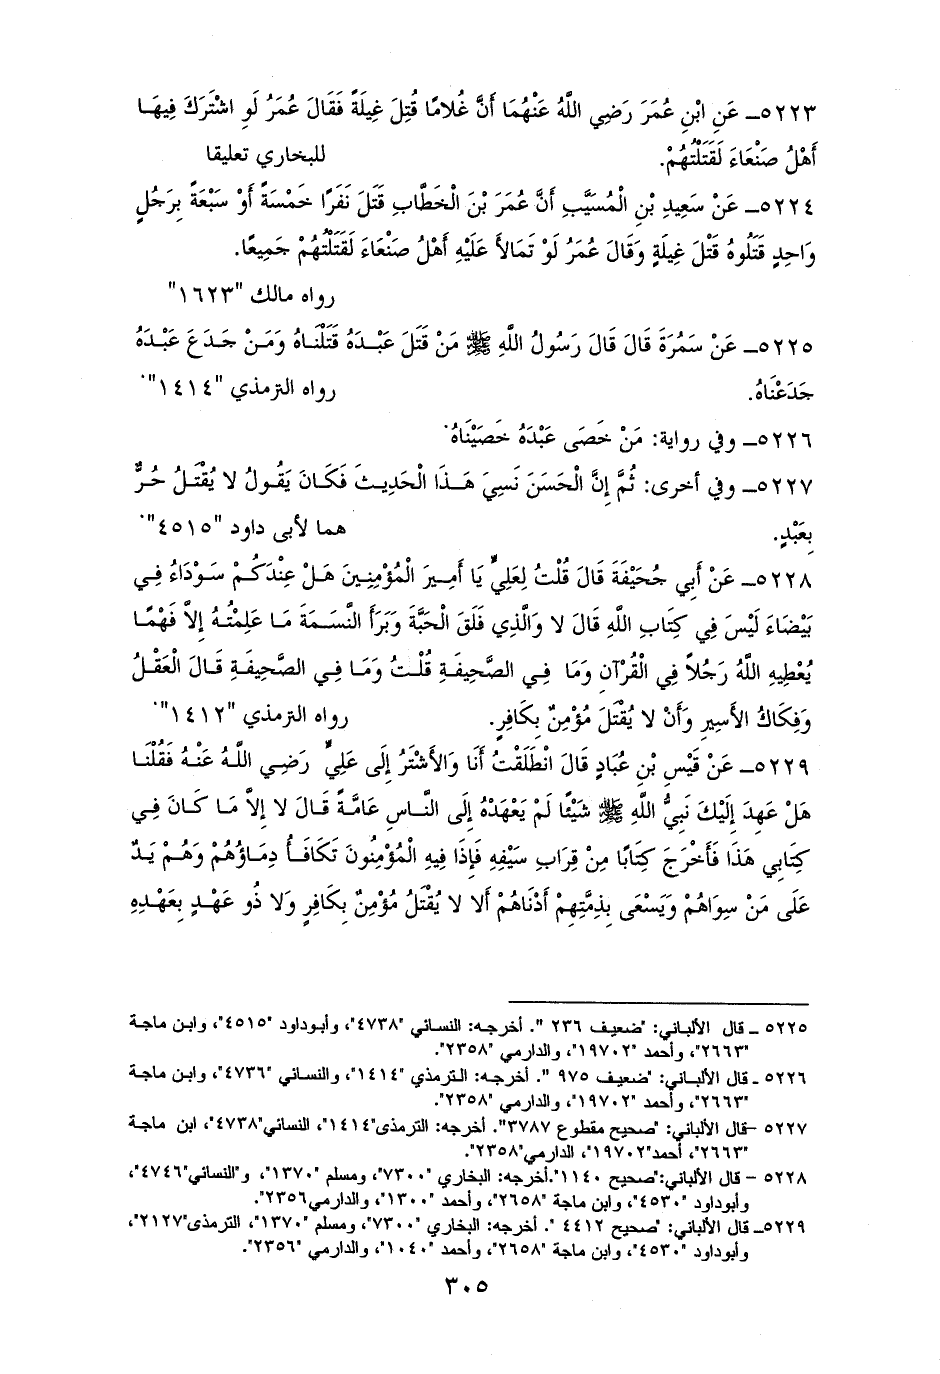 ٥٢٢٣ـ عَنِ ابْنِ عُمَرَ رَضِي اللَّهُ عَنْهُمَا أَنَّ غُلامًا قُتِلَ غِيلَةً فَقَالَ عُمَرُ لَوِ اشْتَرَكَ فِيهَا
أَهْلُ صَنْعَاءَ لَقَتَلْتُهُمْ. للبخاري تعليقا
٥٢٢٤ـ عَنْ سَعِيدِ بْنِ الْمُسَيَّبِ أَنَّ عُمَرَ بْنَ الْخَطَّابِ قَتَلَ نَفَرًا خَمْسَةً أَوْ سَبْعَةً بِرَجُلٍ
وَاحِدٍ قَتَلُوهُ قَتْلَ غِيلَةٍ وَقَالَ عُمَرُ لَوْ تَمَالأَ عَلَيْهِ أَهْلُ صَنْعَاءَ لَقَتَلْتُهُمْ جَمِيعًا.
رواه مالك "١٦٢٣"
٥٢٢٥ـ عَنْ سَمُرَةَ قَالَ قَالَ رَسُولُ اللَّهِ ﷺ مَنْ قَتَلَ عَبْدَهُ قَتَلْنَاهُ وَمَنْ جَدَعَ عَبْدَهُ
جَدَعْنَاهُ. رواه الترمذي "١٤١٤".
٥٢٢٦ـ وفي رواية: مَنْ خَصَى عَبْدَهُ خَصَيْنَاهُ.
٥٢٢٧ـ وفي أخرى: ثُمَّ إِنَّ الْحَسَنَ نَسِيَ هَذَا الْحَدِيثَ فَكَانَ يَقُولُ لا يُقْتَلُ حُرٌّ
بِعَبْدٍ. هما لأبى داود "٤٥١٥".
٥٢٢٨ـ عَنْ أَبِي جُحَيْفَةَ قَالَ قُلْتُ لِعَلِيٍّ يَا أَمِيرَ الْمُؤْمِنِينَ هَلْ عِنْدَكُمْ سَوْدَاءُ فِي
بَيْضَاءَ لَيْسَ فِي كِتَابِ اللَّهِ قَالَ لا وَالَّذِي فَلَقَ الْحَبَّةَ وَبَرَأَ النَّسَمَةَ مَا عَلِمْتُهُ إِلاَّ فَهْمًا
يُعْطِيهِ اللَّهُ رَجُلاً فِي الْقُرْآنِ وَمَا فِي الصَّحِيفَةِ قُلْتُ وَمَا فِي الصَّحِيفَةِ قَالَ الْعَقْلُ
وَفِكَاكُ الأَسِيرِ وَأَنْ لا يُقْتَلَ مُؤْمِنٌ بِكَافِرٍ. رواه الترمذي "١٤١٢".
٥٢٢٩ـ عَنْ قَيْسِ بْنِ عُبَادٍ قَالَ انْطَلَقْتُ أَنَا وَالأَشْتَرُ إِلَى عَلِيٍّ رَضِي اللَّهُ عَنْهُ فَقُلْنَا
هَلْ عَهِدَ إِلَيْكَ نَبِيُّ اللَّهِ ﷺ شَيْئًا لَمْ يَعْهَدْهُ إِلَى النَّاسِ عَامَّةً قَالَ لا إِلاَّ مَا كَانَ فِي
كِتَابِي هَذَا فَأَخْرَجَ كِتَابًا مِنْ قِرَابِ سَيْفِهِ فَإِذَا فِيهِ الْمُؤْمِنُونَ تَكَافَأُ دِمَاؤُهُمْ وَهُمْ يَدٌ
عَلَى مَنْ سِوَاهُمْ وَيَسْعَى بِذِمَّتِهِمْ أَدْنَاهُمْ أَلا لا يُقْتَلُ مُؤْمِنٌ بِكَافِرٍ وَلا ذُو عَهْدٍ بِعَهْدِهِ
٥٢٢٥ ـ قال الألباني: "ضعيف ٢٣٦ ". أخرجه: النسائي "٤٧٣٨"، وأبوداود "٤٥١٥"، وابن ماجة
"٢٦٦٣"، وأحمد "١٩٧٠٢"، والدارمي "٢٣٥٨".
٥٢٢٦ ـ قال الألباني: "ضعيف ٩٧٥ ". أخرجه: الترمذي "١٤١٤"، والنسائي "٤٧٣٦"، وابن ماجة
"٢٦٦٣"، وأحمد "١٩٧٠٢"، والدارمي "٢٣٥٨".
٥٢٢٧ –قال الألباني: "صحيح مقطوع ٣٧٨٧". أخرجه: الترمذى"١٤١٤"، النسائي"٤٧٣٨"، ابن ماجة
"٢٦٦٣"، أحمد"١٩٧٠٢"، الدارمي"٢٣٥٨".
٥٢٢٨ – قال الألباني:"صحيح ١١٤٠".أخرجه: البخاري "٧٣٠٠"، ومسلم "١٣٧٠"، و"النسائي"٤٧٤٦"،
وأبوداود "٤٥٣٠"، وابن ماجة "٢٦٥٨"، وأحمد "١٣٠٠"، والدارمي"٢٣٥٦".
٥٢٢٩ـ قال الألباني: "صحيح ٤٤١٢ ". أخرجه: البخاري "٧٣٠٠"، ومسلم "١٣٧٠"، الترمذى"٢١٢٧"،
وأبوداود "٤٥٣٠"، وابن ماجة "٢٦٥٨"، وأحمد "١٠٤٠"، والدارمي "٢٣٥٦".
٣٠٥